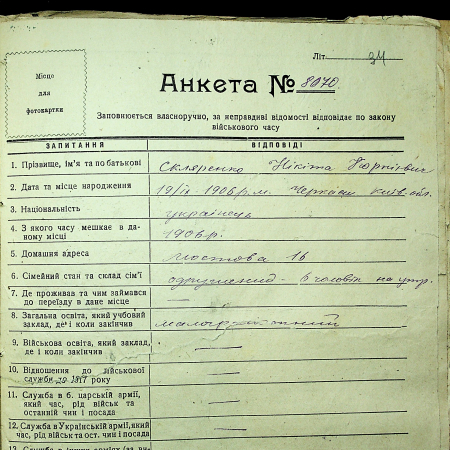 Літ. 94
Місце
для
фотокартки
Анкета № 8070
Заповнюється власноручно, за неправдиві відомості відповідає по закону
військового часу
ЗАПИТАННЯ ВІДПОВІДІ
1. Прізвище, ім'я та по батькові Скляренко Нікіта
2. Дата та місце народження 19/ІХ-1906 р. м. Черкаси Київ. обл.
3. Національність українець
4. З якого часу мешкає в да-
ному місці 1906 р.
5. Домашня адреса Мостова 16
6. Сімейний стан та склад сім'ї одружений - 6 чоловік на утр.
7. Де проживав та чим займався
до переїзду в дане місце —
8. Загальна освіта, який учбовий
заклад, де і коли закінчив малограмотний
9. Військова освіта, який заклад,
де і коли закінчив —
10. Відношення до військової
служби до 1917 року —
11. Служба в б. царській армії,
який час, рід військ та
останній чин і посада —
12. Служба в Українській армії, який
час, рід військ та ост. чин і посада —